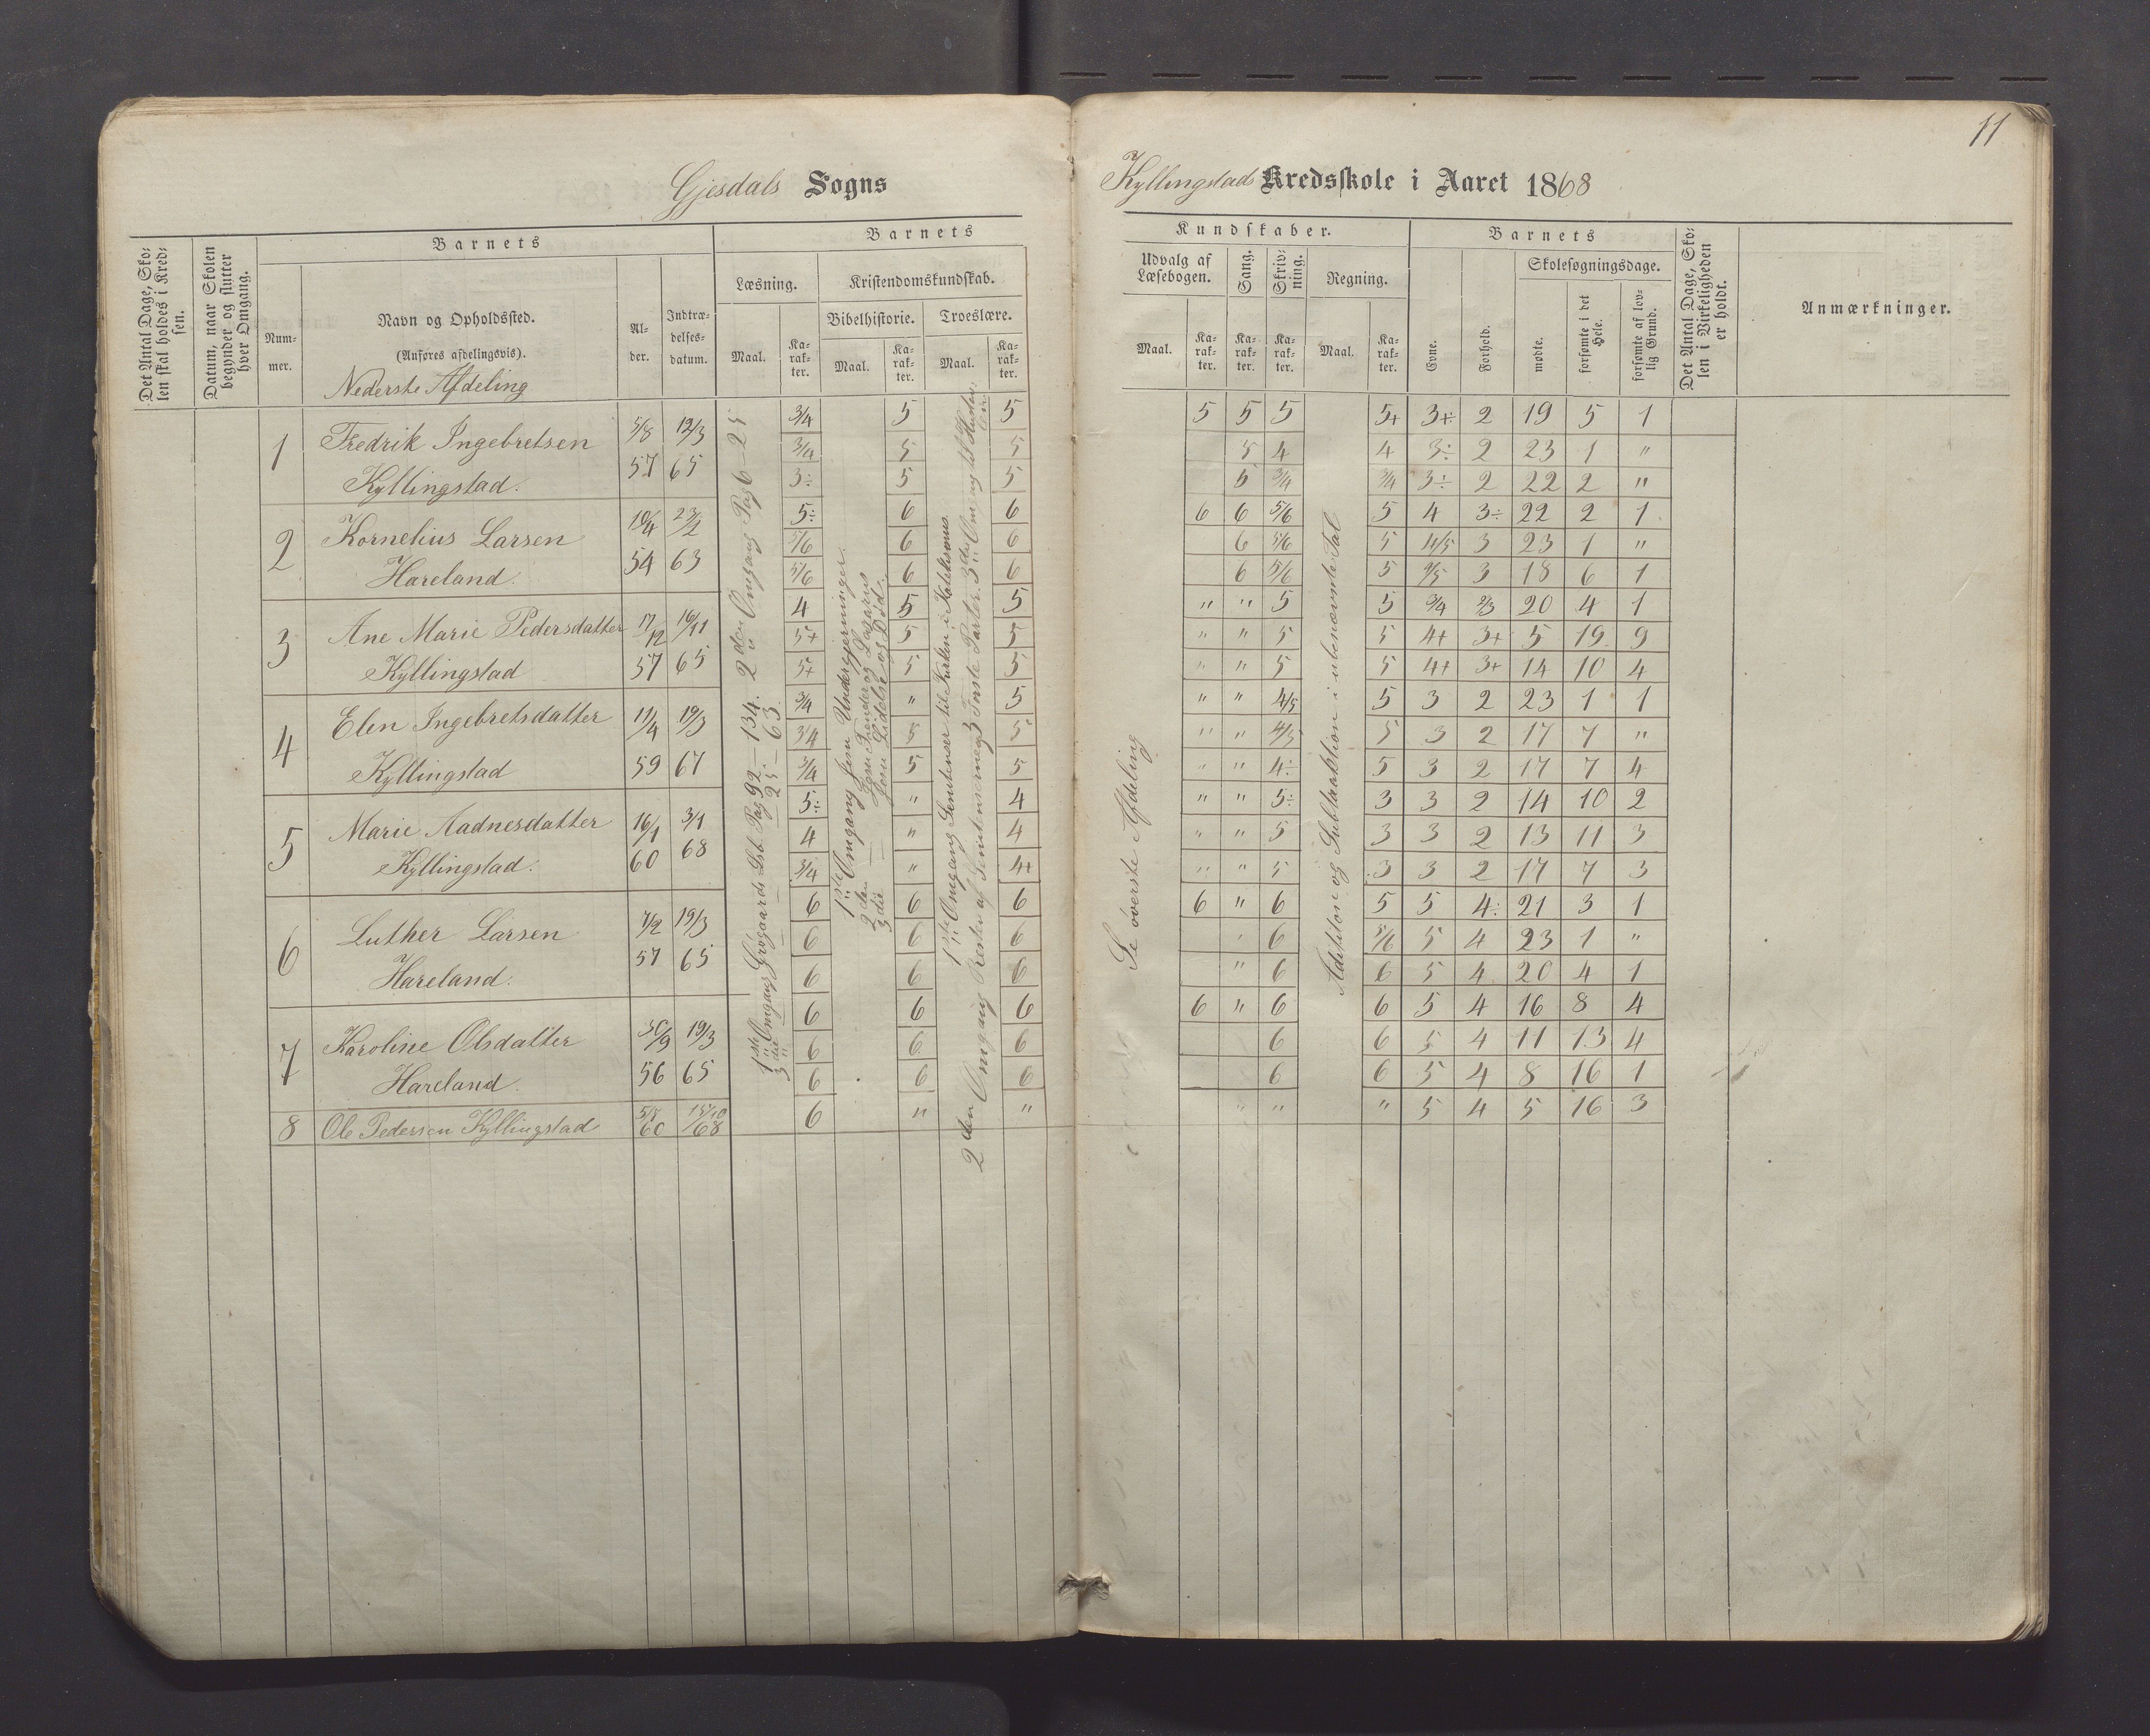 11
Gjesdals Sogns
Kyllingstad Kredsskole i Aaret 1868
Det Antal Dage, Sko-
len skal holdes i Kred-
sen.
Datum, naar Skolen
begynder og slutter
hver Omgang.
Barnets
Num-
mer.
Navn og Opholdssted.
(Anføres afdelingsvis).
Nederste Afdeling
Al-
der.
Indtræ-
delses-
datum.
Barnets
Læsning.
Maal.
Ka-
rak-
ter.
Kristendomskundskab.
Bibelhistorie.
Maal.
Ka-
rak-
ter.
Troeslære.
Maal.
Ka-
rak-
ter.
Kundskaber.
Udvalg af
Læsebogen.
Maal.
Ka-
rak-
ter.
Sang.
Ka-
rak-
ter.
Skriv-
ning.
Ka-
rak-
ter.
Regning.
Maal.
Ka-
rak-
ter.
Barnets
Evne.
Forhold.
Skolesøgningsdage.
mødte.
forsømte i det
Hele.
forsømte af lov-
lig Grund.
Det Antal Dage, Sko-
len i Virkeligheden
er holdt.
Anmærkninger.
1 Fredrik Ingebretsen 5/8 12/3
Kyllingstad. 57 65
3/4 5 5 5 5 5 5+ 3+ 2 19 5 1
3/4 5 5 5 4 4 3÷ 2 23 1 "
3÷ 5 5 5 3/4 3/4 3÷ 2 22 2 "
2 Kornelius Larsen 10/4 23/2
Hareland. 54 63
5÷ 6 6 6 6 5/6 5 4 3÷ 22 2 1
5/6 6 6 6 5/6 5 4/5 3 23 1 "
5/6 6 6 6 5/6 5 4/5 3 18 6 1
3 Ane Marie Pedersdatter 17/12 16/11
Kyllingstad 57 65
4 5 5 " " 5 5 3/4 2/3 20 4 1
5+ 5 5 " " 5 5 4+ 3+ 5 19 9
5+ 5 5 " " 5 5 4+ 3+ 14 10 4
4 Elen Ingebretsdatter 11/4 19/3
Kyllingstad 59 67
3/4 " 5 " " 4/5 5 3 2 23 1 1
3/4 5 5 " " 4/5 5 3 2 17 7 "
3/4 5 5 " " 4÷ 5 3 2 17 7 4
5 Marie Aadnesdatter 16/1 3/1
Kyllingstad. 60 68
5÷ " 4 " " 5÷ 3 3 2 14 10 2
4 " 4 " " 5 3 3 2 13 11 3
3/4 " 4+ " " 5 3 3 2 17 7 3
6 Luther Larsen 7/2 19/3
Hareland. 57 65
6 6 6 6 " 6 5 5 4÷ 21 3 1
6 6 6 " 6 5/6 5 4 23 1 "
6 6 6 " 6 6 5 4 20 4 1
7 Karoline Olsdatter 30/9 19/3
Hareland. 56 65
6 6 6 6 " 6 6 5 4 16 8 4
6 6 6 6 6 5 4 11 13 4
6 6 6 6 6 5 4 8 16 1
8 Ole Pedersen Kyllingstad 60 68
6 " " " " " 5 4 5 16 3
1ste Omgang Grøgaards Lsb. Pag 92 — 134. 2den Omgang Pag 6 — 25
3die — — 25 — 63
1ste Omgang Jesu Undergjerninger.
2den — Jesu Fiender og Lazarus
3die — Jesu Lidelse og Død.
1ste Omgang Sentenser til Parten i Katekismus.
2den Omgang Resten af Sentenserne
Se øverste Afdeling
Addition og Subtraktion i ubenævnte Tal